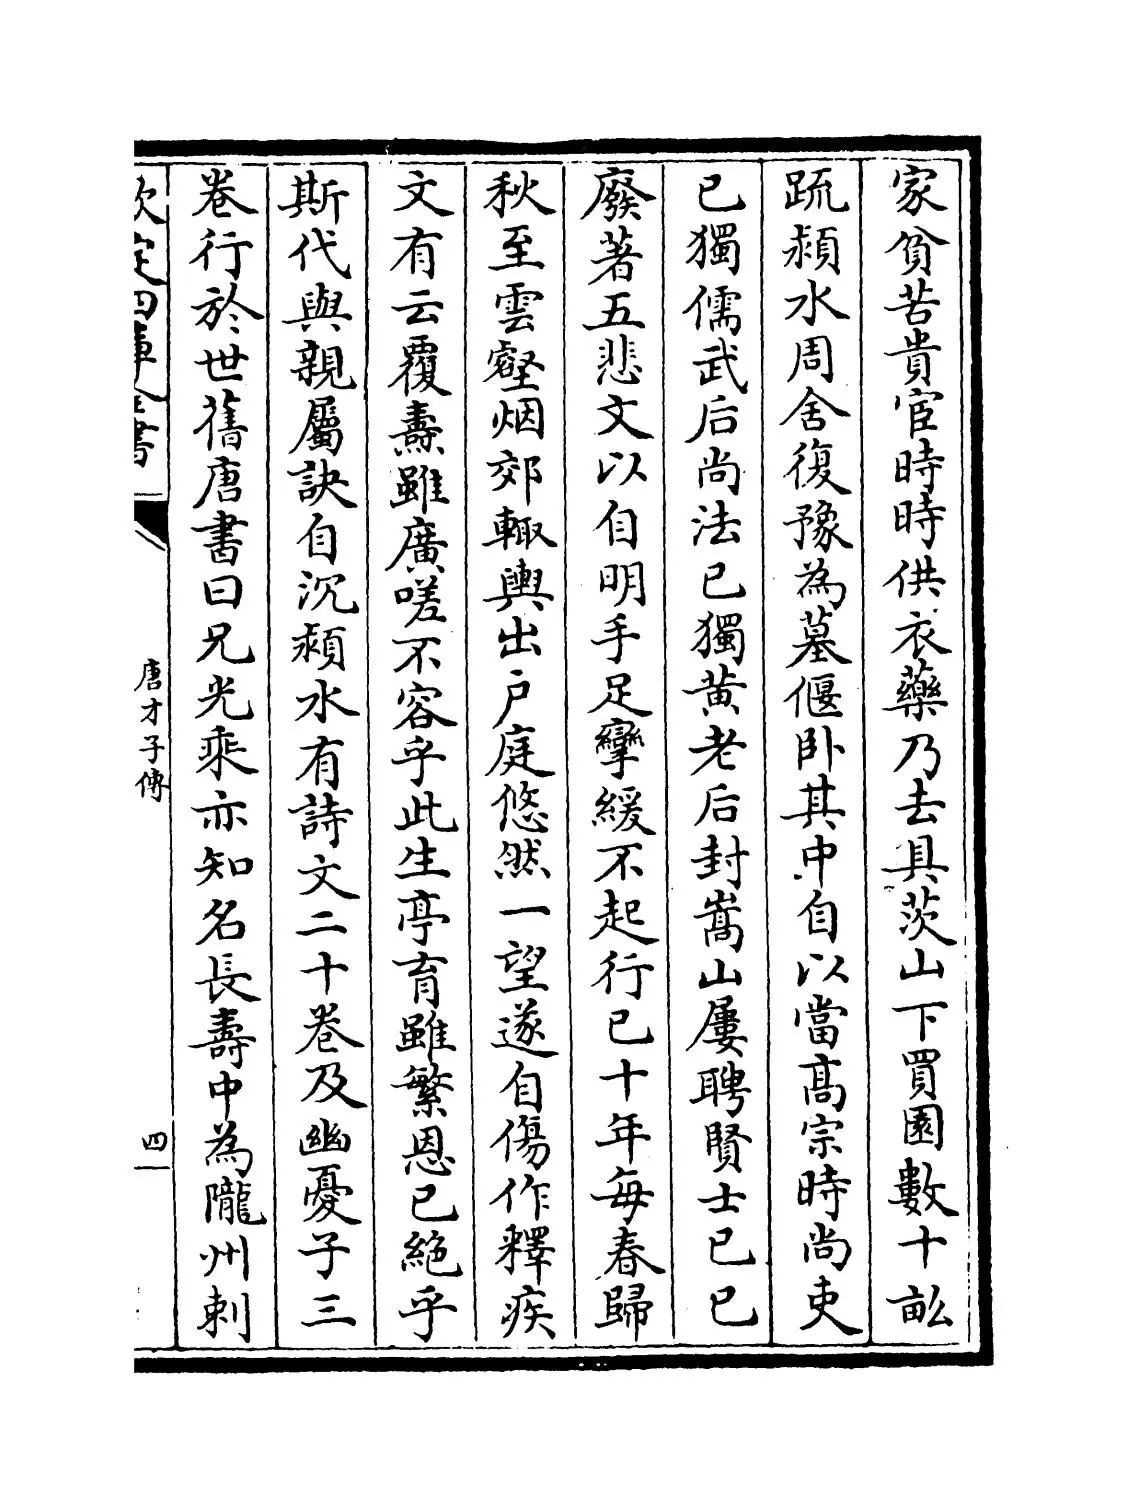 家貧苦貴宦時時供衣藥乃去具茨山下買園數十畝
疏潁水周舍復豫為墓偃卧其中自以當髙宗時尚吏
已獨儒武后尚法已獨黄老后封嵩山屢聘賢士已已
廢著五悲文以自明手足攣緩不起行已十年每春歸
秋至雲壑烟郊輙輿出戶庭悠然一望遂自傷作釋疾
文有云覆燾雖廣嗟不容乎此生亭育雖繁恩已絶乎
斯代與親屬訣自沉潁水有詩文二十卷及幽憂子三
卷行於世舊唐書曰兄光乘亦知名長壽中為隴州刺
欽定四庫全書
唐才子傳
四